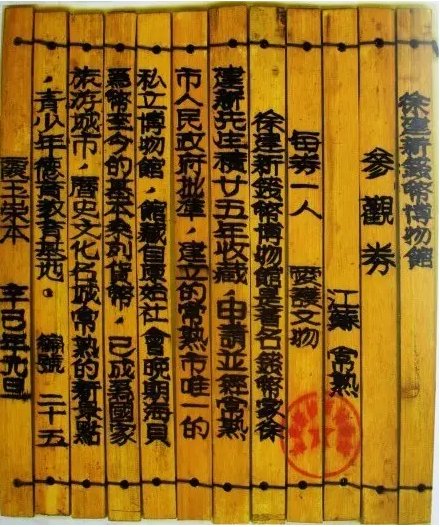 徐建新錢幣博物館
參觀券
江蘇 常熟
每券一人 愛護文物
徐建新錢幣博物館是著名錢幣家徐
建新先生積廿五年收藏,申請並經常熟
市人民政府批準,建立的常熟市唯一的
私立博物館,館藏自原始社會晚期海貝
爲幣至今的基本系列貨幣,已成爲國家
旅游城市,曆史文化名城常熟的新景點
,青少年德育教育基地。 編號 二十五
辛巳年